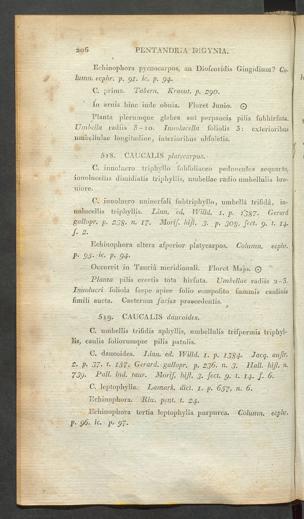 206 PENTANDRIA DIGYNIA.
Echinophora pycnocarpos, an Dioscoridis Gingidium? Co-
lumn. ecphr. p. 91. ic. p. 94.
C. prima. Tabern. Kraeut. p. 290.
In arvis hinc inde obvia. Floret Junio. ⊙
Planta plerumque glabra aut perpaucis pilis subhirsuta.
Umbella radiis 8-10. Involucella foliolis 5: exterioribus
umbellulae longitudine, interioribus obsoletis.
518. CAUCALIS platycarpos.
C. involucro triphyllo subfoliaceo pedunculos aequante,
involucellis dimidiatis triphyllis, umbellae radio umbellulis bre-
viore.
C. involucro universali subtriphyllo, umbellâ trifidâ, in-
volucellis triphyllis. Linn. ed. Willd. 1. p. 1387. Gerard
gallopr. p. 238. n. 17. Moris. hist. 3. p. 308. sect. 9. t. 14.
f. 2.
Echinophora altera asperior platycarpos. Column. ecphr.
p. 95. ic. p. 94.
Occurrit in Tauriâ meridionali. Floret Majo. ⊙
Planta pilis erectis tota hirsuta. Umbellae radiis 2-3.
Involucri foliola saepe apice folio composito summis caulinis
simili aucta. Caeterum facies praecedentis.
519. CAUCALIS daucoides.
C. umbellis trifidis aphyllis, umbellulis trispermis triphyl-
lis, caulis foliorumque pilis patulis.
C. daucoides. Linn. ed. Willd. 1. p. 1384. Jacq. austr.
2. p. 37. t. 157. Gerard. gallopr. p. 236. n. 3. Hall. hist. n.
739. Pall. ind. taur. Moris. hist. 3. sect. 9. t. 14. f. 6.
C. leptophylla. Lamark. dict. 1. p. 657. n. 6.
Echinophora. Riv. pent. t. 24.
Echinophora tertia leptophylla purpurea. Column. ecphr.
p. 96. ic. p. 97.